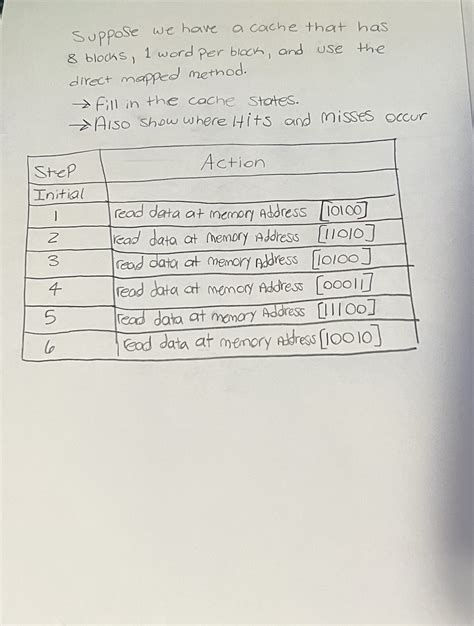 Suppose we have a cache that has
8 blocks, 1 word per block, and use the
direct mapped method.
→ Fill in the cache states.
→ Also show where Hits and Misses occur
Step Action
Initial
1 read data at memory Address [10100]
2 read data at memory Address [11010]
3 read data at memory Address [10100]
4 read data at memory Address [00011]
5 read data at memory Address [11100]
6 read data at memory Address [10010]